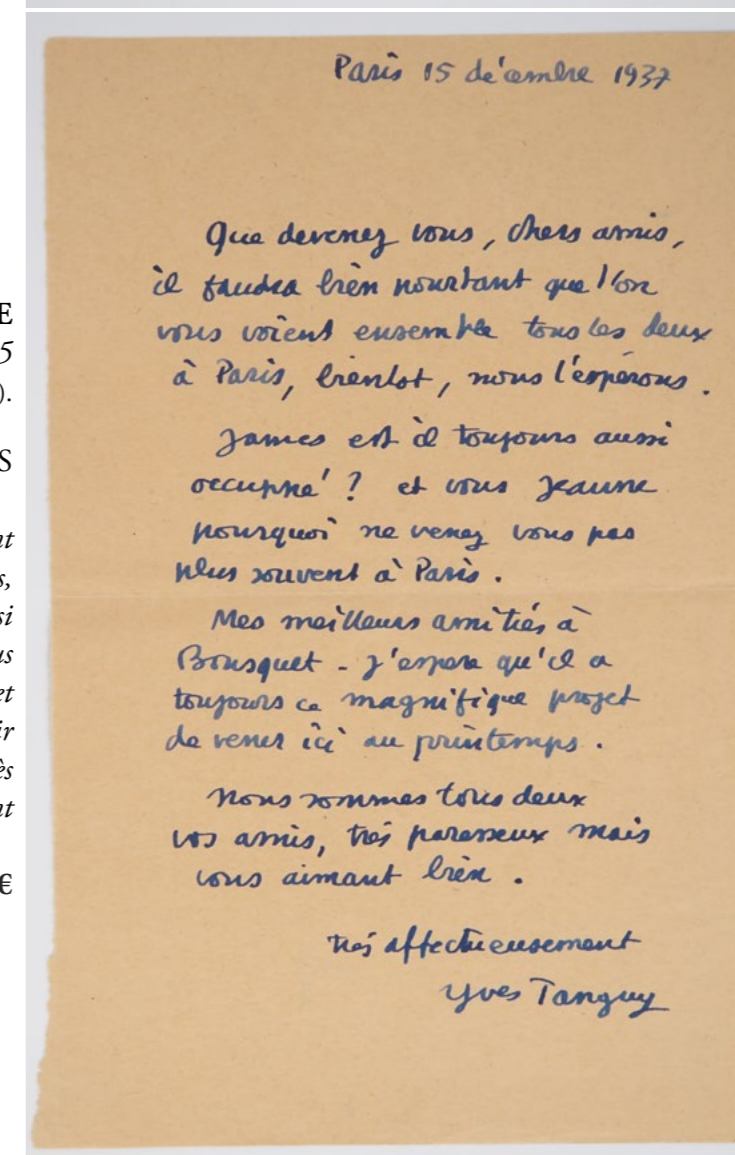 E
5
).
S
nt
s,
si
us
et
ir
ès
nt
€
Paris 15 décembre 1937
Que devenez vous, chers amis,
il faudra bien pourtant que l'on
vous voient ensemble tous les deux
à Paris, bientot, nous l'espérons.
James est il toujours aussi
occuppé ? et vous Jeanne
pourquoi ne venez vous pas
plus souvent à Paris.
Mes meilleurs amitiés à
Bousquet - J'espere qu'il a
toujours ce magnifique projet
de venir ici au printemps.
Nous sommes tous deux
vos amis, très paresseux mais
vous aimant bien.
très affectueusement
Yves Tanguy